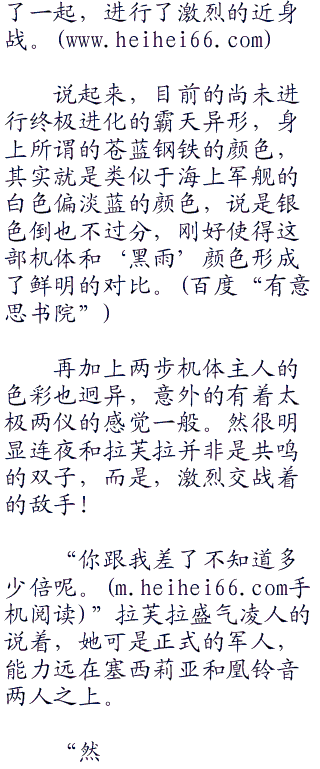 了一起，进行了激烈的近身
战。(www.heihei66.com)
说起来，目前的尚未进
行终极进化的霸天异形，身
上所谓的苍蓝钢铁的颜色，
其实就是类似于海上军舰的
白色偏淡蓝的颜色，说是银
色倒也不过分，刚好使得这
部机体和‘黑雨’颜色形成
了鲜明的对比。(百度“有意
思书院”)
再加上两步机体主人的
色彩也迥异，意外的有着太
极两仪的感觉一般。然很明
显连夜和拉芙拉并非是共鸣
的双子，而是，激烈交战着
的敌手！
“你跟我差了不知道多
少倍呢。(m.heihei66.com手
机阅读)”拉芙拉盛气凌人的
说着，她可是正式的军人，
能力远在塞西莉亚和凰铃音
两人之上。
“然